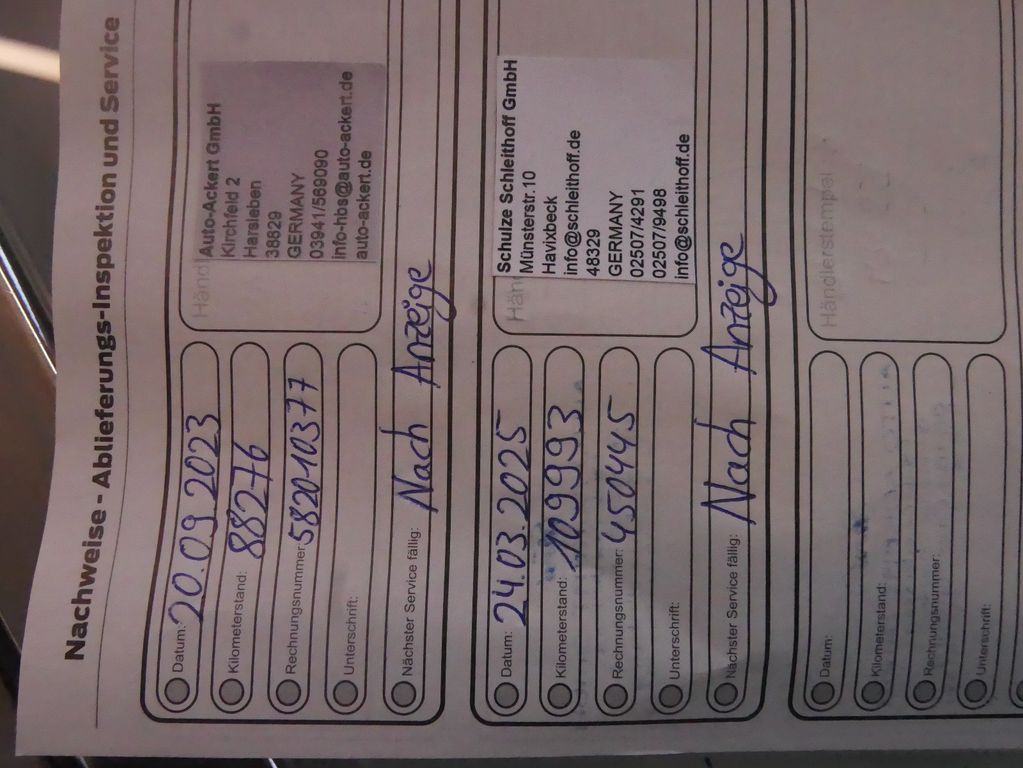 Nachweise - Ablieferungs-Inspektion und Service
Datum: 20.09.2023
Kilometerstand: 88276
Rechnungsnummer: 582010377
Unterschrift:
Nächster Service fällig: Nach Anzeige
Händ
Auto-Ackert GmbH
Kirchfeld 2
Harsleben
38829
GERMANY
03941/569090
info-hbs@auto-ackert.de
auto-ackert.de
Datum: 24.03.2025
Kilometerstand: 109993
Rechnungsnummer: 450445
Unterschrift:
Nächster Service fällig: Nach Anzeige
Hän
Schulze Schleithoff GmbH
Münsterstr.10
Havixbeck
info@schleithoff.de
48329
GERMANY
02507/4291
02507/9498
info@schleithoff.de
Datum:
Kilometerstand:
Rechnungsnummer:
Unterschrift:
Händlerstempel